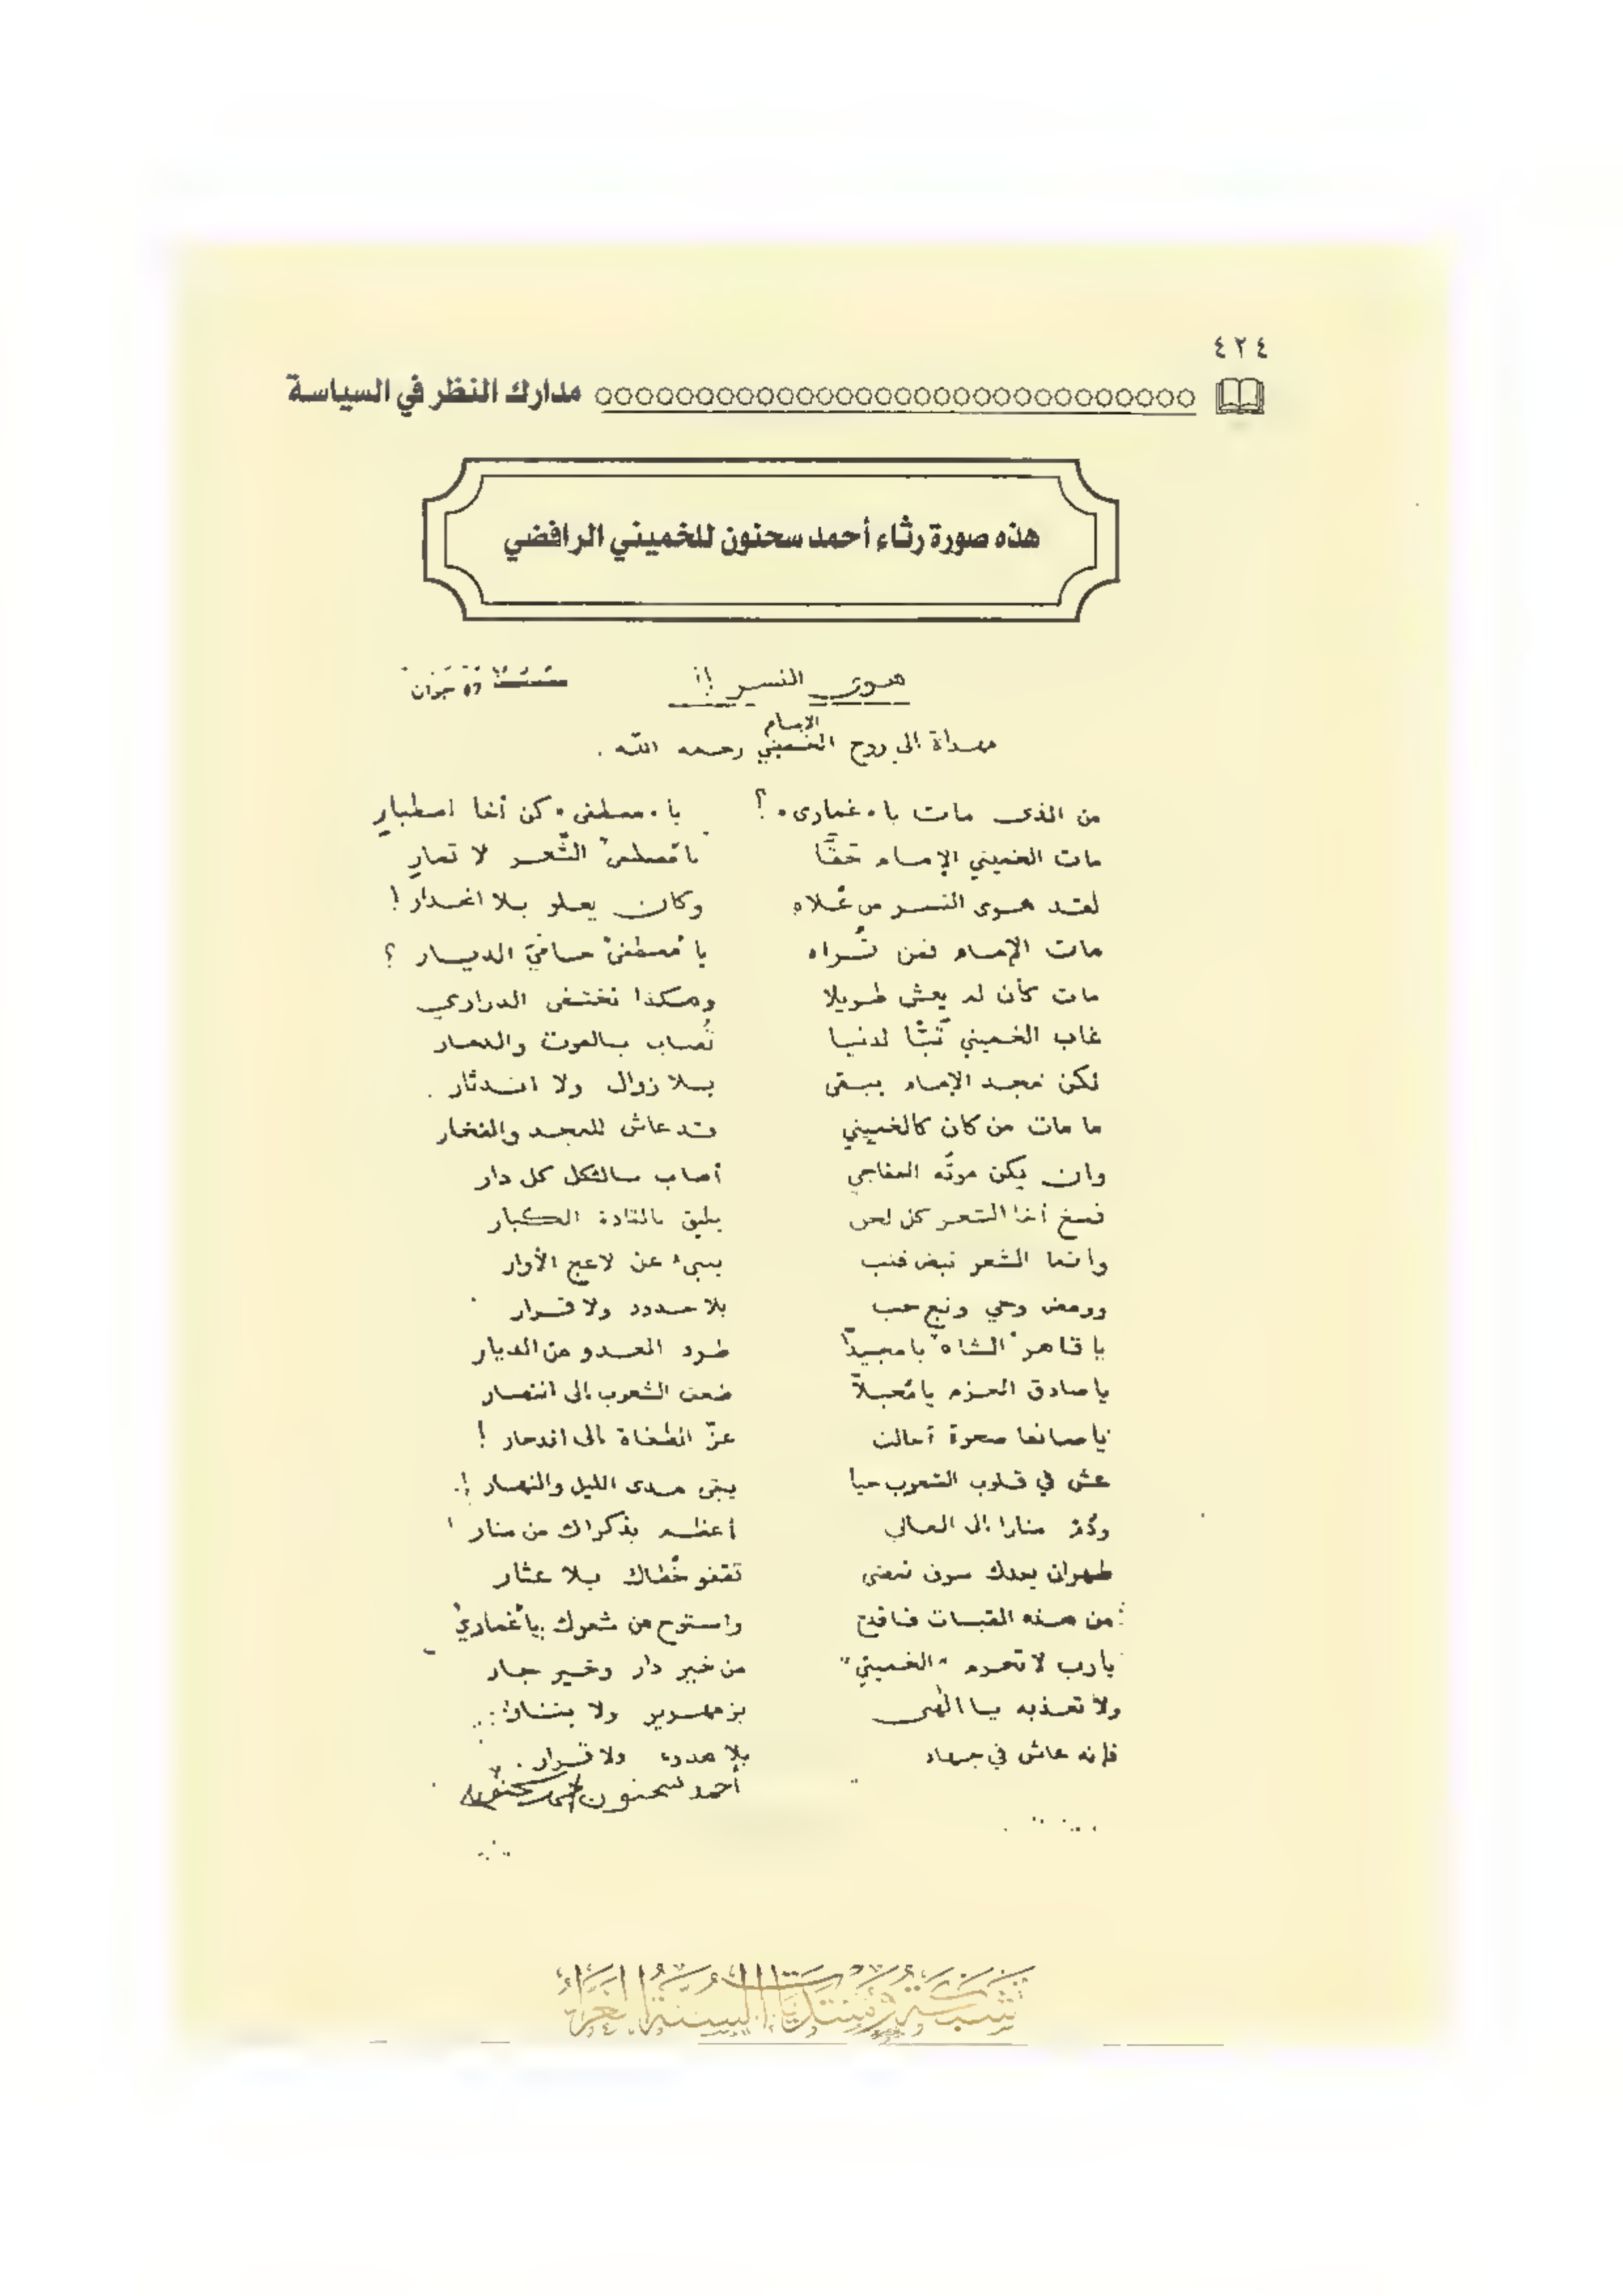 ٤٢٤
مدارك النظر في السياسة
هذه صورة رثاء أحمد سحنون للخميني الرافضي
هوى النسر !؟
07 جوان
الإمام
مهداة إلى روح الخميني رحمه الله .
من الذى مات يا "غمارى" ؟ يا "مصطفى" كن أخا اصطبارِ
مات الخميني الإمام حقًّا يا مصطفى الشعر لا تمارِ
لقد هوى النسر من عُلاه وكان يعلو بلا انحدار !
مات الإمام فمن تُراه يا "مصطفى" حامي الديار ؟
مات كأن لم يعش طويلا وهكذا تختفى الدراري
غاب الخميني تبًّا لدنيا تُصاب بالموت والدمار
لكن مجد الإمام يبقى بلا زوال ولا اندثار .
ما مات من كان كالخميني قد عاش للمجد والفخار
وإن يكن موته المفاجي أصاب بالثكل كل دار
فصغ أخا الشعر كل لحن يليق بالقادة الكبار
وإنما الشعر نبض قلب ينبىء عن لاعج الأوار
وومض وحي ونبع حب بلا حدود ولا قرار
يا قاهر "الشاه" يا مجيداً طرد العدو من الديار
يا صادق العزم يا مُحيلاً ضعف الشعوب إلى انتصار
يا صانعا صحوة أحالت عزّ الطغاة إلى اندحار !
عش في قلوب الشعوب حيا يبقى مدى الليل والنهار !
ودُم منارا إلى المعالي أعظم بذكراك من منار !
طهران بعدك سوف تمضى تقفو خُطاك بلا عثار
من هذه القبسات فاقدح واستوح من شعرك يا "غماري"
يا رب لا تحرم "الخميني" من خير دار وخير جار
ولا تعذبه يا إلهى بزمهرير ولا بنار
فإنه عاش في جهاد بلا هدوء ولا قرار .
أحمد سحنون
شبكة ومنتديات السنة الغراء